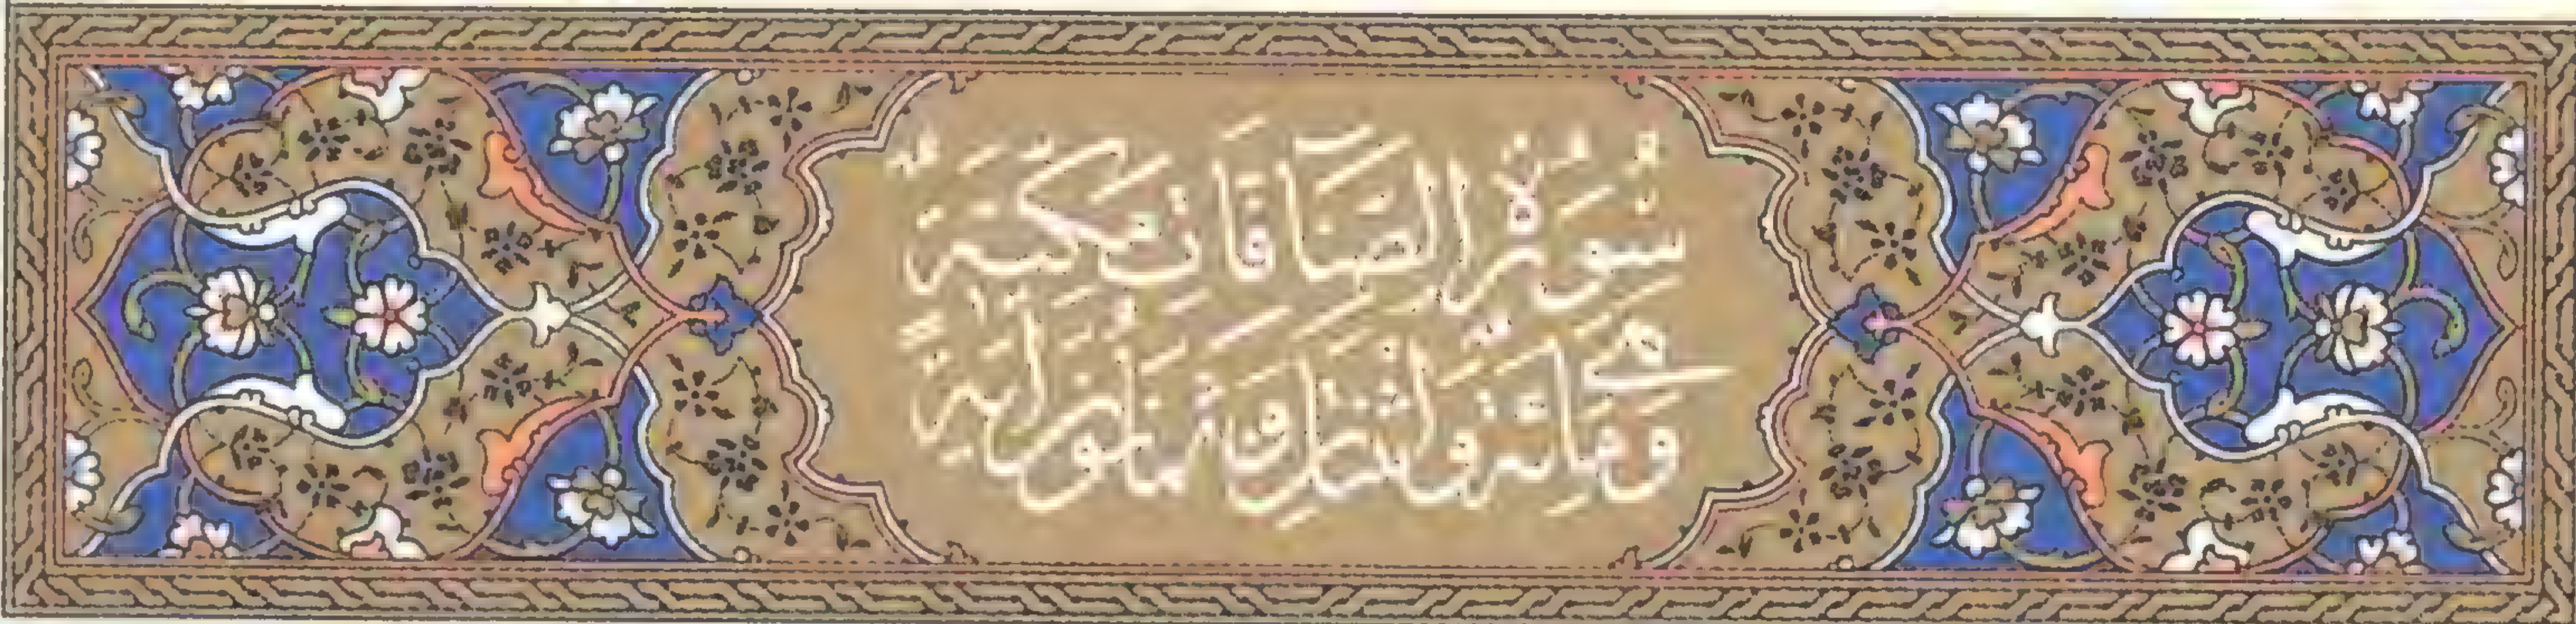 سُورَةُ الصَّافَّاتِ مَكِّيَّةٌ
وَهِيَ مِائَةٌ وَاثْنَتَانِ وَثَمَانُونَ آيَةً